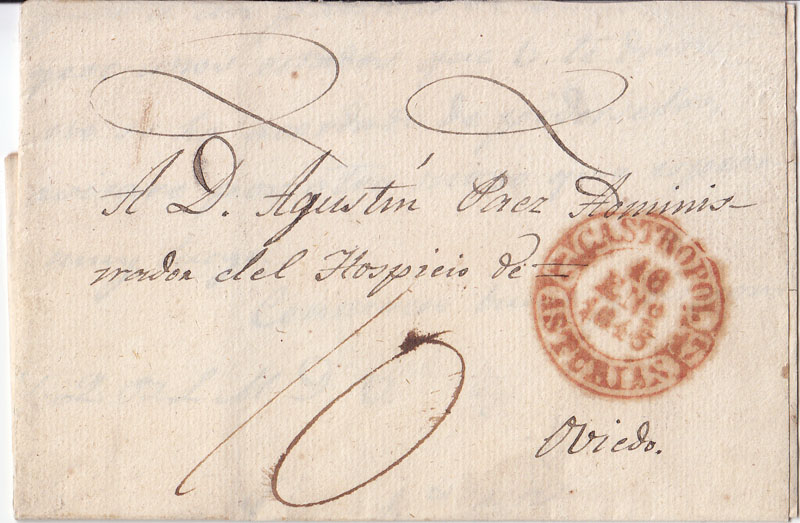 A D. Agustín Paez Adminis-
trador del Hospicio de
10
Oviedo.
CASTROPOL
16
ENº
1845
ASTURIAS